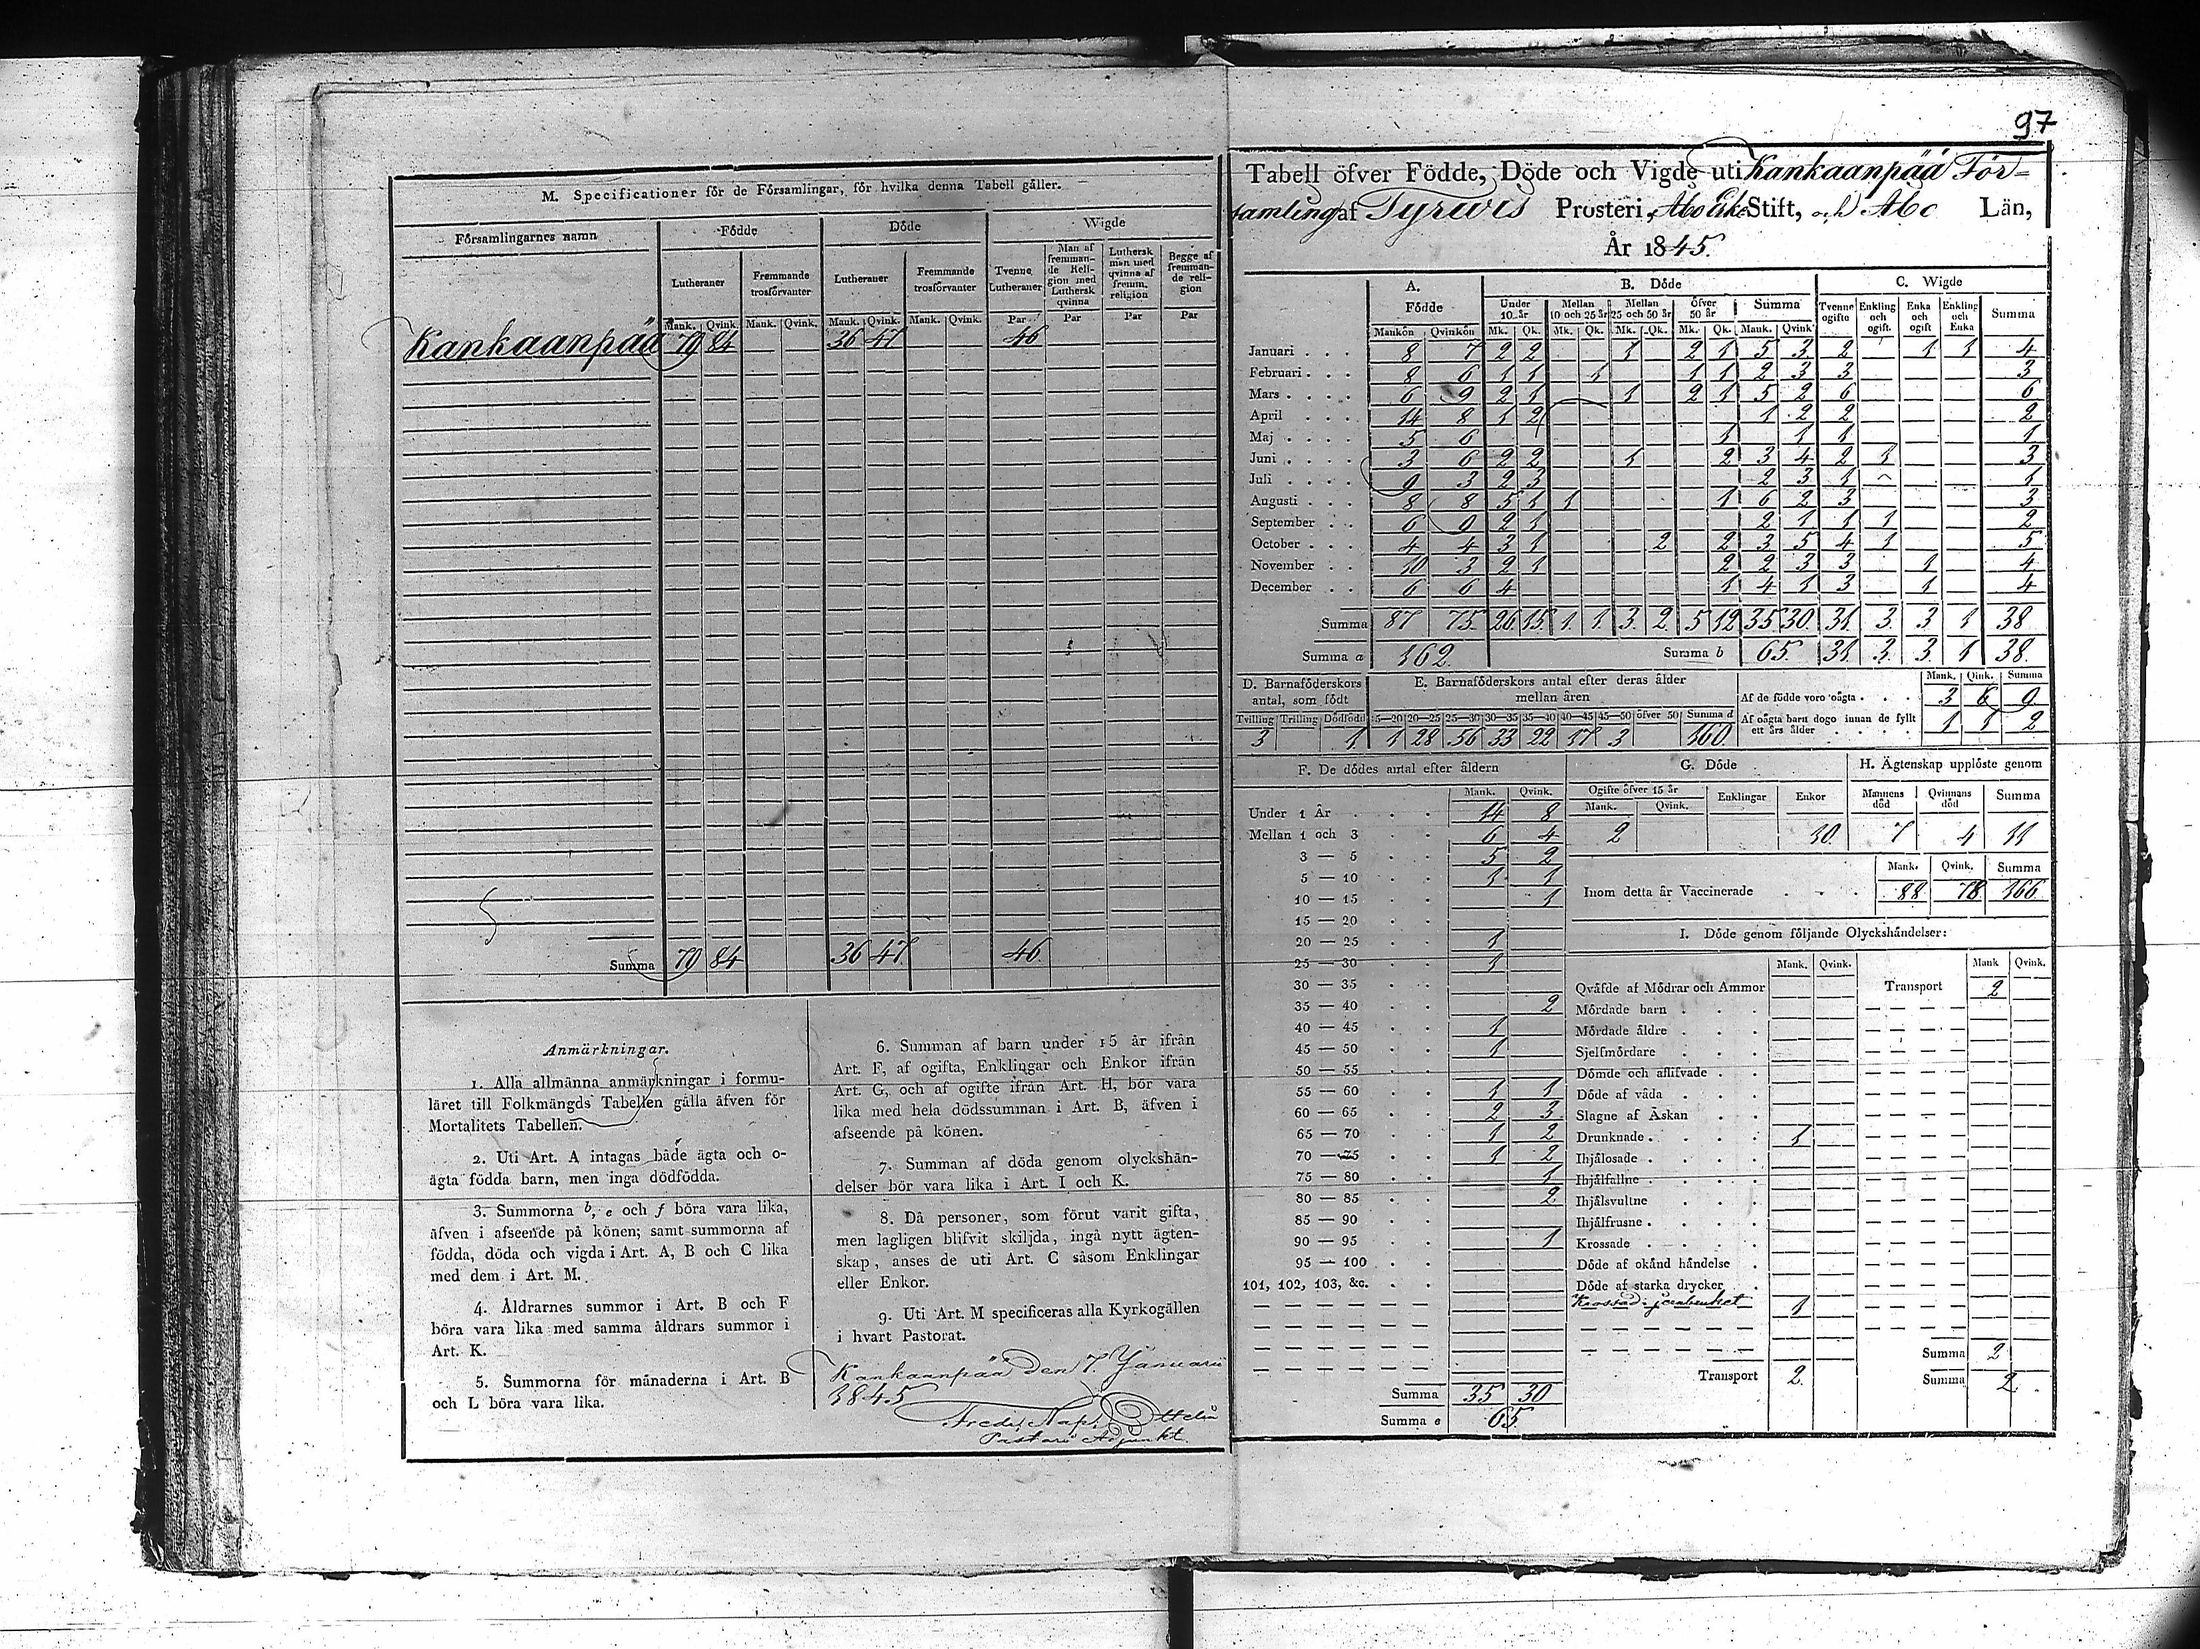 M. Specificationer för de Församlingar, för hvilka denna Tabell gäller.
Församlingarnes namn Födde Döde Wigde
Lutheraner Fremmande trosförvanter Lutheraner Fremmande trosförvanter Tvenne Lutheraner Man af fremmande Religion med Luthersk qvinna Luthersk man med qvinna af fremm. religion Begge af fremmande religion
Mank. Qvink. Mank. Qvink. Mank. Qvink. Mank. Qvink. Par Par Par Par
Kankaanpää 79 84 36 47 46
Summa 79 84 36 47 46
Anmärkningar.
1. Alla allmänna anmärkningar i formu-
läret till Folkmängds Tabellen gälla äfven för
Mortalitets Tabellen.
2. Uti Art. A intagas både ägta och o-
ägta födda barn, men inga dödfödda.
3. Summorna b, e och f böra vara lika,
äfven i afseende på könen; samt summorna af
födda, döda och vigda i Art. A, B och C lika
med dem i Art. M.
4. Åldrarnes summor i Art. B och F
böra vara lika med samma åldrars summor i
Art. K.
5. Summorna för månaderna i Art. B
och L böra vara lika.
6. Summan af barn under 15 år ifrån
Art. F, af ogifta, Enklingar och Enkor ifrån
Art. G, och af ogifte ifrån Art. H, bör vara
lika med hela dödssumman i Art. B, äfven i
afseende på könen.
7. Summan af döda genom olyckshän-
delser bör vara lika i Art. I och K.
8. Då personer, som förut varit gifta,
men lagligen blifvit skiljda, ingå nytt ägten-
skap, anses de uti Art. C såsom Enklingar
eller Enkor.
9. Uti Art. M specificeras alla Kyrkogällen
i hvart Pastorat.
Kankaanpää den 7 Januarii
1845
Fred. Nap.
Pastors Adjunkt.
97
Tabell öfver Födde, Döde och Vigde uti Kankaanpää För-
samling af Tyrvis Prosteri, Åbo Stift, och Åbo Län,
År 1845.
A. Födde B. Döde C. Wigde
Under 10 år Mellan 10 och 25 år Mellan 25 och 50 år Öfver 50 år Summa Tvenne ogifte Enkling och ogift. Enka och ogift Enkling och Enka Summa
Mankön Qvinkön Mk. Qk. Mk. Qk. Mk. Qk. Mk. Qk. Mank. Qvink
Januari 8 7 2 2 1 2 1 5 3 2 1 1 4
Februari 8 6 1 1 1 1 1 2 3 3 3
Mars 6 9 2 1 1 2 1 5 2 6 6
April 14 8 1 2 1 2 2 2
Maj 5 6 1 1 1 1
Juni 3 6 2 2 1 2 3 4 2 1 3
Juli 9 3 2 3 2 3 1 1
Augusti 8 8 5 1 1 1 6 2 3 3
September 6 9 2 1 2 1 1 1 2
October 4 4 3 1 2 2 3 5 4 1 5
November 10 3 2 1 2 2 3 3 1 4
December 6 6 4 1 4 1 3 1 4
Summa 87 75 26 15 1 1 3 2 5 12 35 30 31 3 3 1 38
Summa a 162. Summa b 65. 31. 3. 3. 1 38.
D. Barnaföderskors antal, som födt E. Barnaföderskors antal efter deras ålder mellan åren Mank. Qink. Summa
Tvilling Trilling Dödfödd 15—20 20—25 25—30 30—35 35—40 40—45 45—50 öfver 50 Summa d
3 1 1 28 56 33 22 17 3 160.
Af de födde voro oägta 3 6 9
Af oägta barn dogo innan de fyllt ett års ålder 1 1 2
F. De dödes antal efter åldern
Mank. Qvink.
Under 1 År 14 8
Mellan 1 och 3 6 4
3 — 5 5 2
5 — 10 1 1
10 — 15 1
15 — 20
20 — 25 1
25 — 30 1
30 — 35
35 — 40 2
40 — 45 1
45 — 50 1
50 — 55
55 — 60 1 1
60 — 65 2 3
65 — 70 1 2
70 — 75 1 2
75 — 80 1
80 — 85 2
85 — 90
90 — 95 1
95 — 100
101, 102, 103, &c.
Summa 35 30
Summa e 65.
G. Döde
Ogifte öfver 15 år Enklingar Enkor
Mank. Qvink.
2 10.
H. Ägtenskap upplöste genom
Mannens död Qvinnans död Summa
7 4 11
Mank. Qvink. Summa
Inom detta år Vaccinerade 88 78 166
I. Döde genom följande Olyckshändelser:
Mank. Qvink. Mank Qvink.
Qväfde af Mödrar och Ammor Transport 2
Mördade barn
Mördade äldre
Sjelfmördare
Dömde och aflifvade
Döde af våda
Slagne af Åskan
Drunknade 1
Ihjälosade
Ihjälfallne
Ihjälsvultne
Ihjälfrusne
Krossade
Döde af okänd händelse
Döde af starka drycker
1
Summa 2
Transport 2. Summa 2